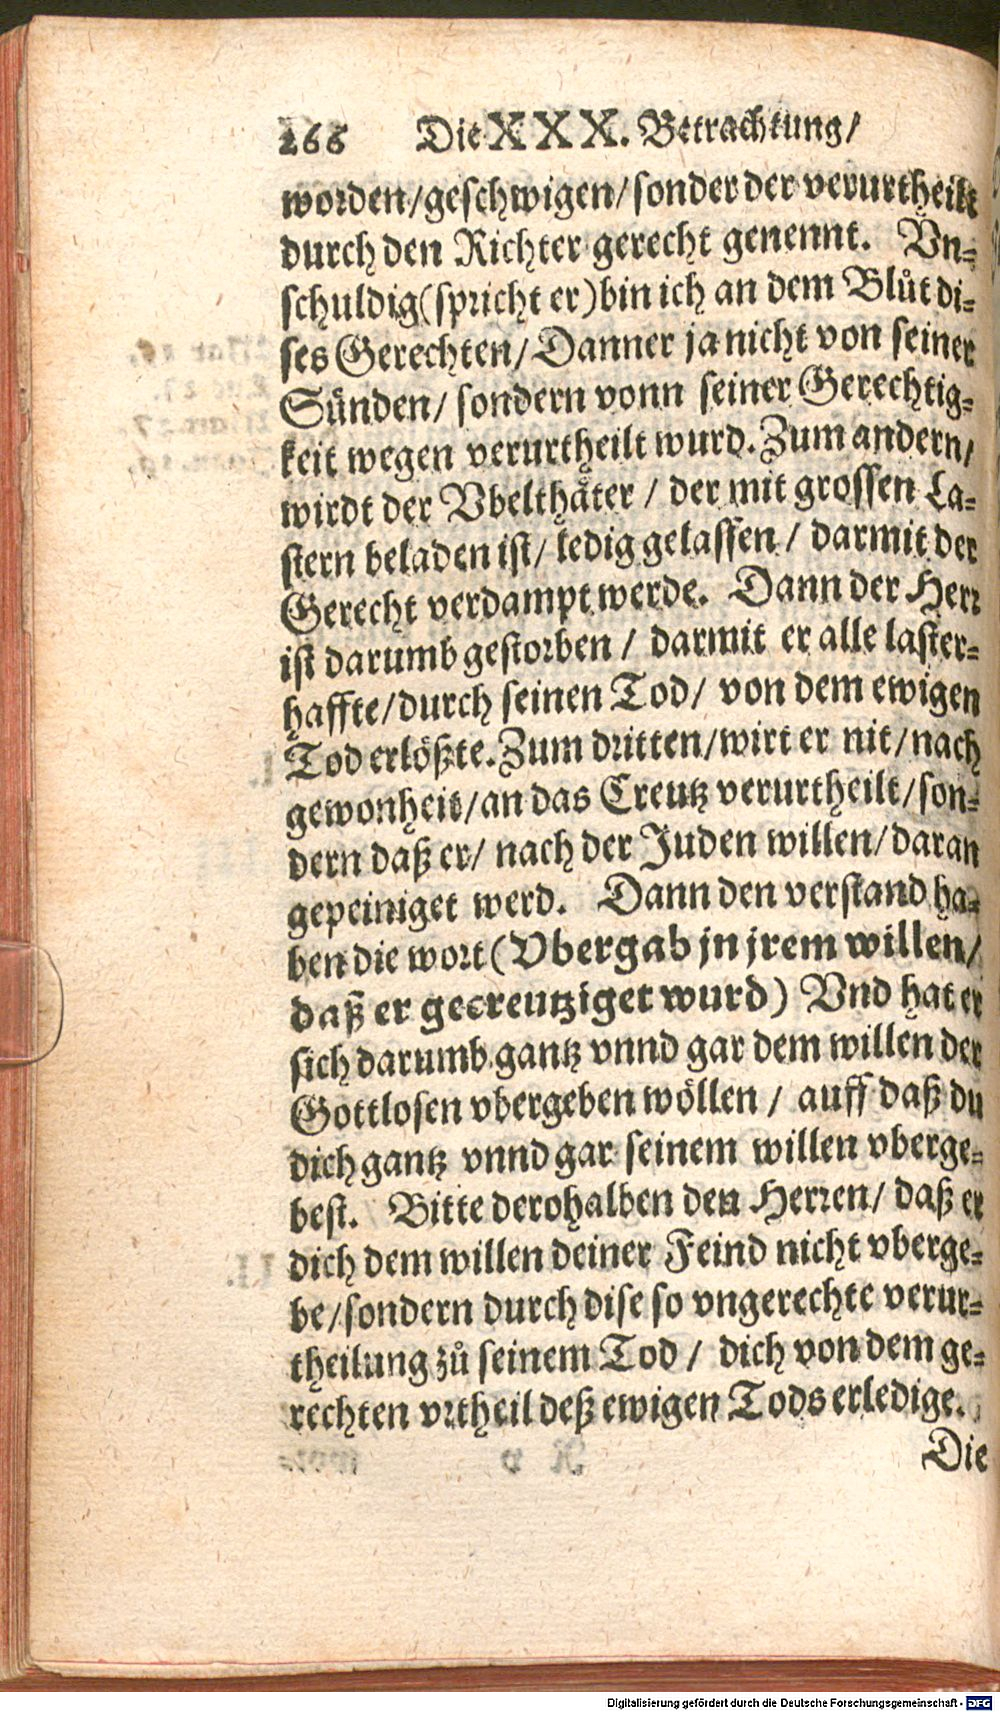 266 Die XXX. Betrachtung/
worden/geschwigen/sonder der verurtheilt
durch den Richter gerecht genennt. Vn-
schuldig(spricht er)bin ich an dem Blůt di-
ses Gerechten/ Danner ja nicht von seiner
Sünden/ sondern vonn seiner Gerechtig-
keit wegen verurtheilt wurd. Zum andern/
wirdt der Vbelthäter / der mit grossen La-
stern beladen ist/ ledig gelassen / darmit der
Gerecht verdampt werde. Dann der Herr
ist darumb gestorben / darmit er alle laster-
haffte/durch seinen Tod/ von dem ewigen
Tod erlößte. Zum dritten/wirt er nit/nach
gewonheit/an das Creutz verurtheilt/son-
dern daß er/ nach der Juden willen/daran
gepeiniget werd. Dann den verstand ha-
ben die wort (Vbergab jn jrem willen/
daß er gecreutziget wurd) Vnd hat er
sich darumb gantz vnnd gar dem willen der
Gottlosen vbergeben wöllen / auff daß du
dich gantz vnnd gar seinem willen vberge-
best. Bitte derohalben den Herren/ daß er
dich dem willen deiner Feind nicht vberge-
be/sondern durch dise so vngerechte verur-
theilung zů seinem Tod / dich von dem ge-
rechten vrtheil deß ewigen Tods erledige.
Die
Digitalisierung gefördert durch die Deutsche Forschungsgemeinschaft - DFG